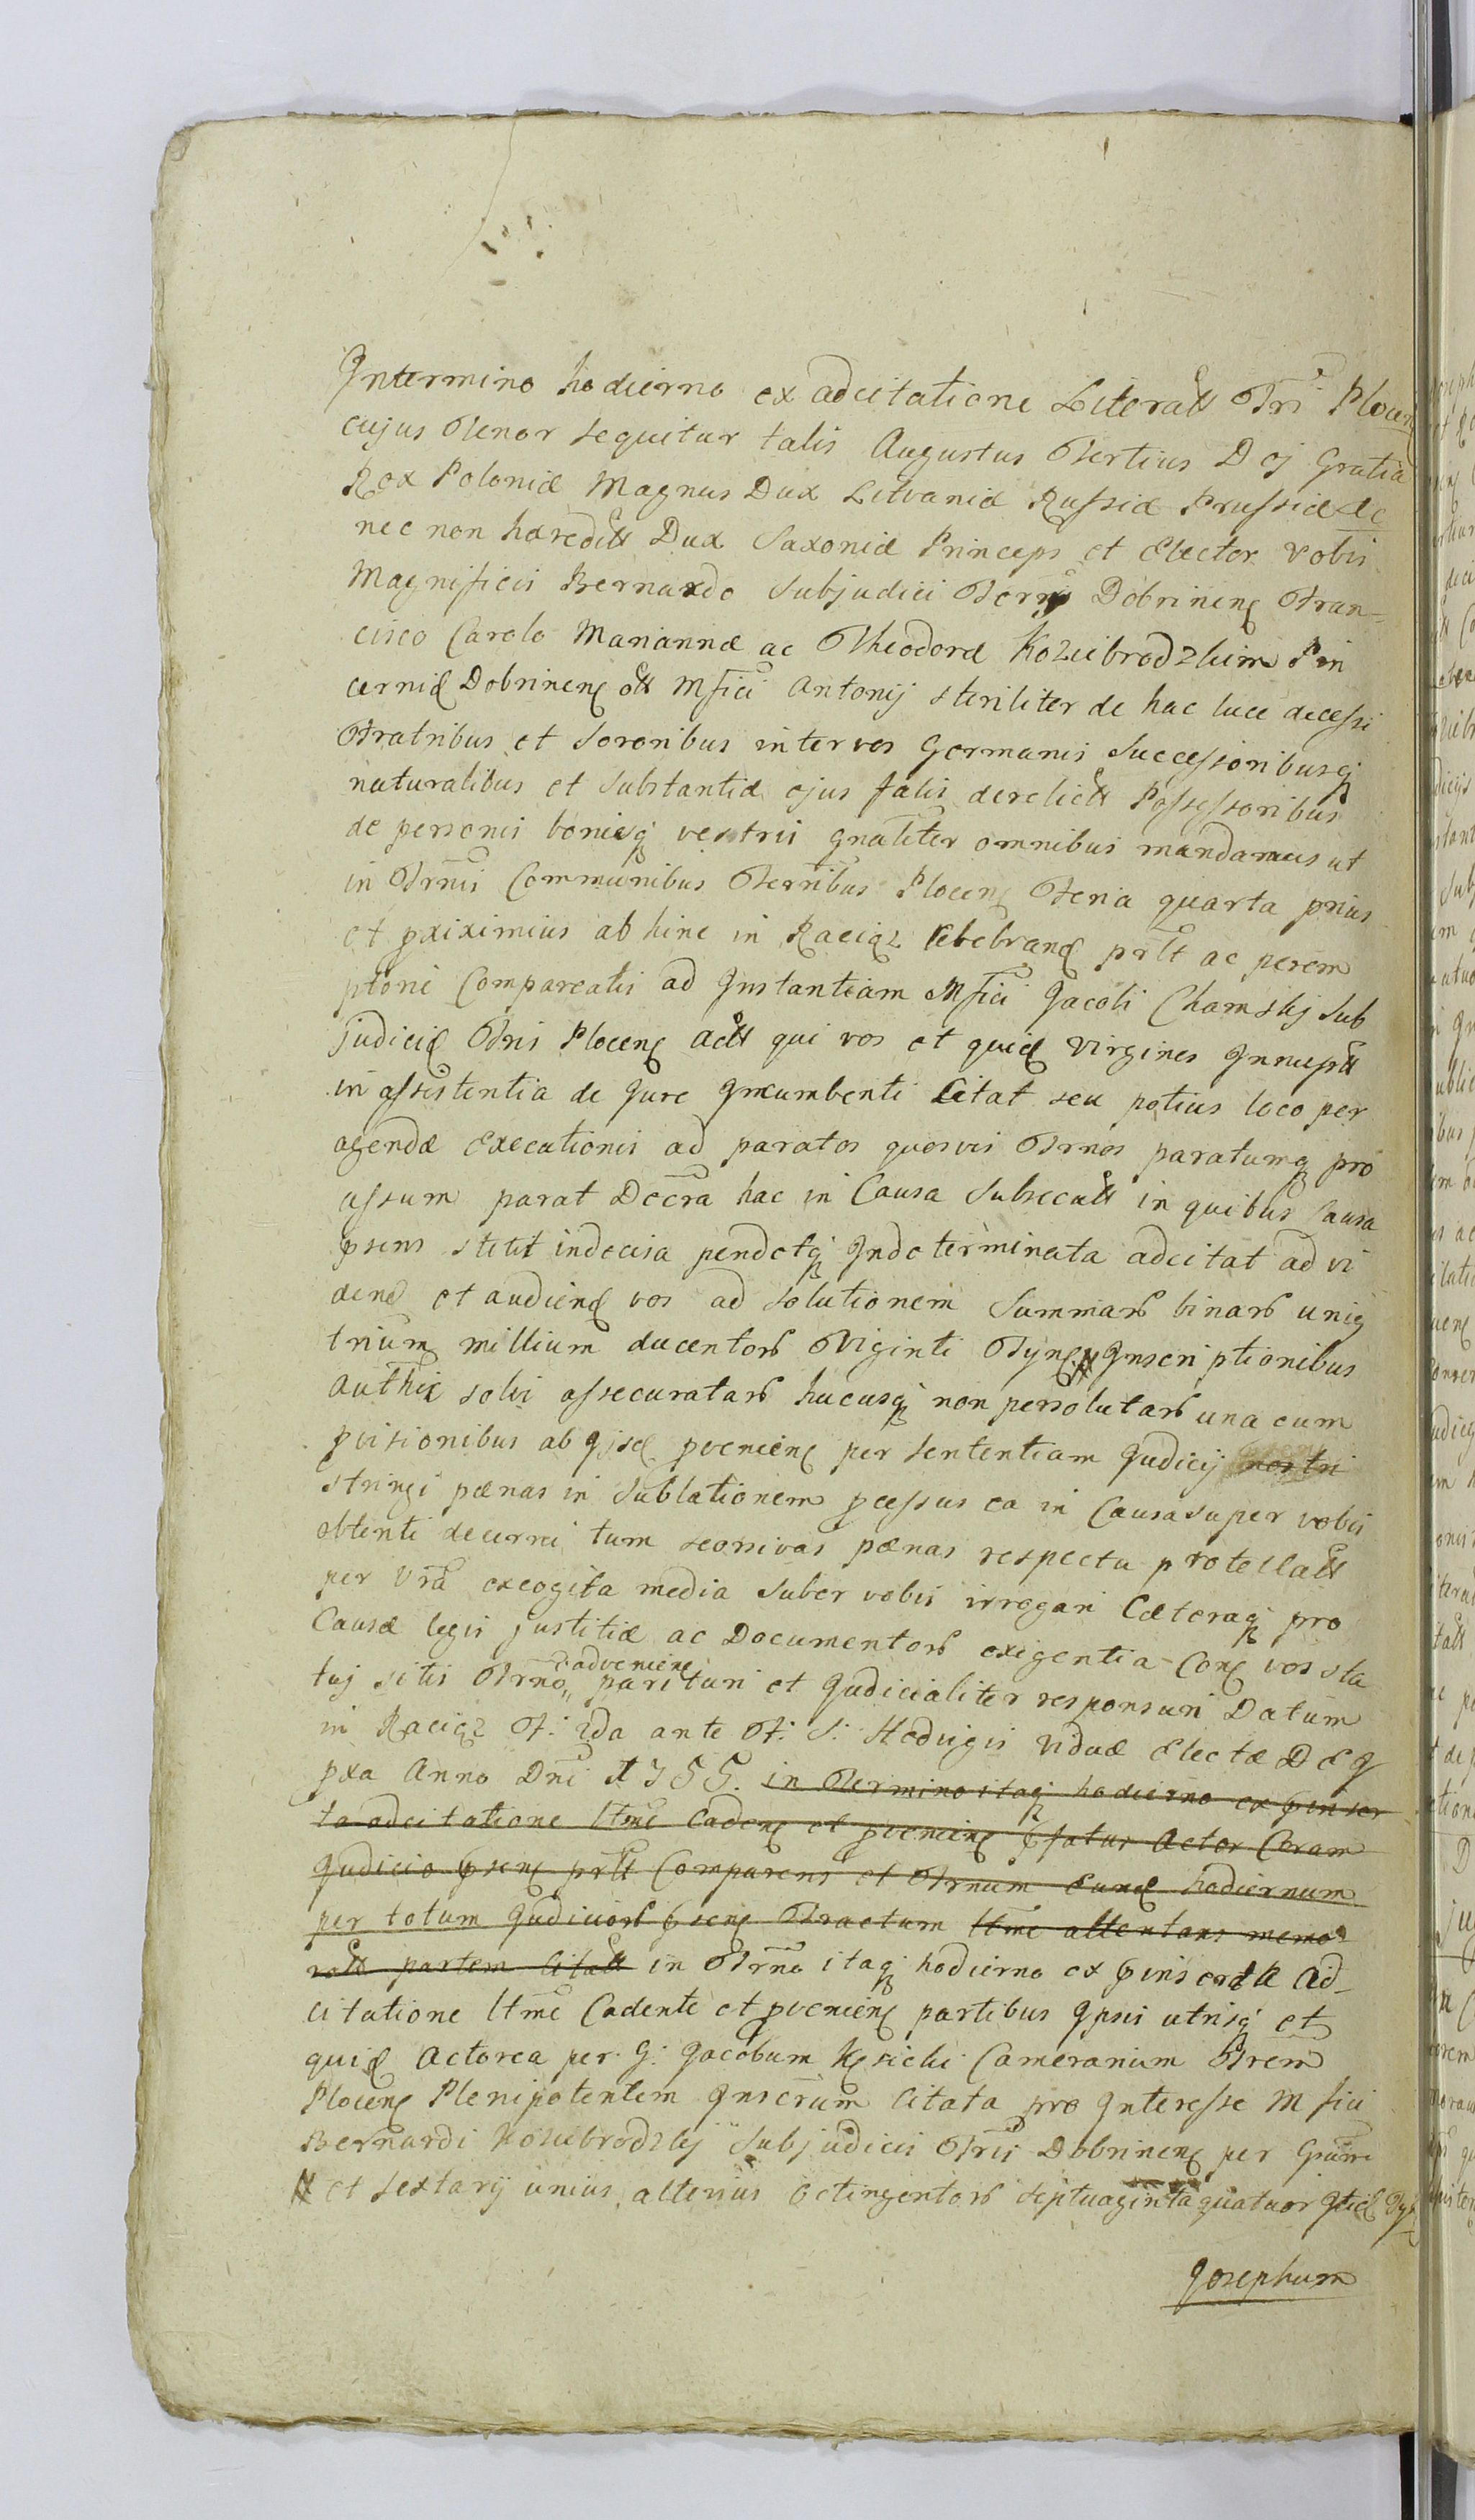 Intermino hodierno ex adcitatione Literali Tri Plocen
cujus Tenor sequitur talis Augustus Tertius D ej Gratia
Rex Poloniæ Magnus Dux Litvaniæ Russiæ Prussiæ &c
nec non hæredit Dux Saxoniæ Princeps et Elector vobis
Magnificis Bernardo Subjudici Terræ Dobrinen Fran-
cisco Carolo Mariannæ ac Theodoræ Koziebrodzkim Pin
cernid Dobrinen olt Mfici Antonij steriliter de hac luce decessi
Fratribus et Sororibus inter vos Germanis Successoribusq
naturalibus et Substantiæ ejus falis derelict Possessoribus
de personis bonisq vestris gnaliter omnibus mandamus ut
in Trnis Communibus Terribus Plocen Feria quarta prius
et pxiximius ab hinc in Raciąz celebrand prlt ac perem
ptorie Compareatis ad Instantiam Mfici Jacobi Chamskij Sub
judicis Tris Plocen act qui vos et quid virgines Innupt
in assistentia de Jure Incumbenti Citat seu potius loco per
agendæ Executionis ad paratos quosvis Trnos paratumq pro
assum parat Decra hac in Causa Subsecut in quibus Causa
psens stetit indecisa pendetq Indeterminata adcitat ad vi
dend et audiend vos ad solutionem Summarb binarb uniq
trium millium ducentorb Viginti Tynf # Inscriptionibus
authic solvi assecuratarb hucusq non persolutarb una cum
pvisionibus ab ijsd pvenien per Sententiam Judicij nostri
stringi pænas in Sublationem pcessus ea in Causa super vobis
obtenti decerni tum seorsivas pænas respectu protellat
per Vra exeogita media Suber vobis irrogari Cæteraq pro
Causæ legis justitiæ ac Documentorb exigentia Con vos sta
tuj sitis Trno adveniente parituri et Judicialiter responsuri Datum
in Raciąz F: 2da ante F: S: Hedvigis viduæ Electæ D E q
pxa Anno Dni 1755. in Termino itaq hodierno ex pinser
ta adcitatione ltme Caden et pvenien pfatus Actor Coram
Judicio psen prlt Comparens et Trnum eund hodiernum
per totum Judiciorb psen Tractum ltme attentans memo
rat partem Citat in Trno itaq hodierno ex pinserta Ad-
citatione ltme Cadente et pvenien partibus Ipsis utrisq et
quid Actorea per G: Jacobum Kęsicki Camerarium Trem
Plocen Plenipotentem Inscrum Citata pro Interesse M fici
Bernardi Koziebrodzkij Subjudicis Tris Dobrinen per Grum
# et sextarij unius alterius octingentorb septuaginta quatuor Itid Tyf
Josephum